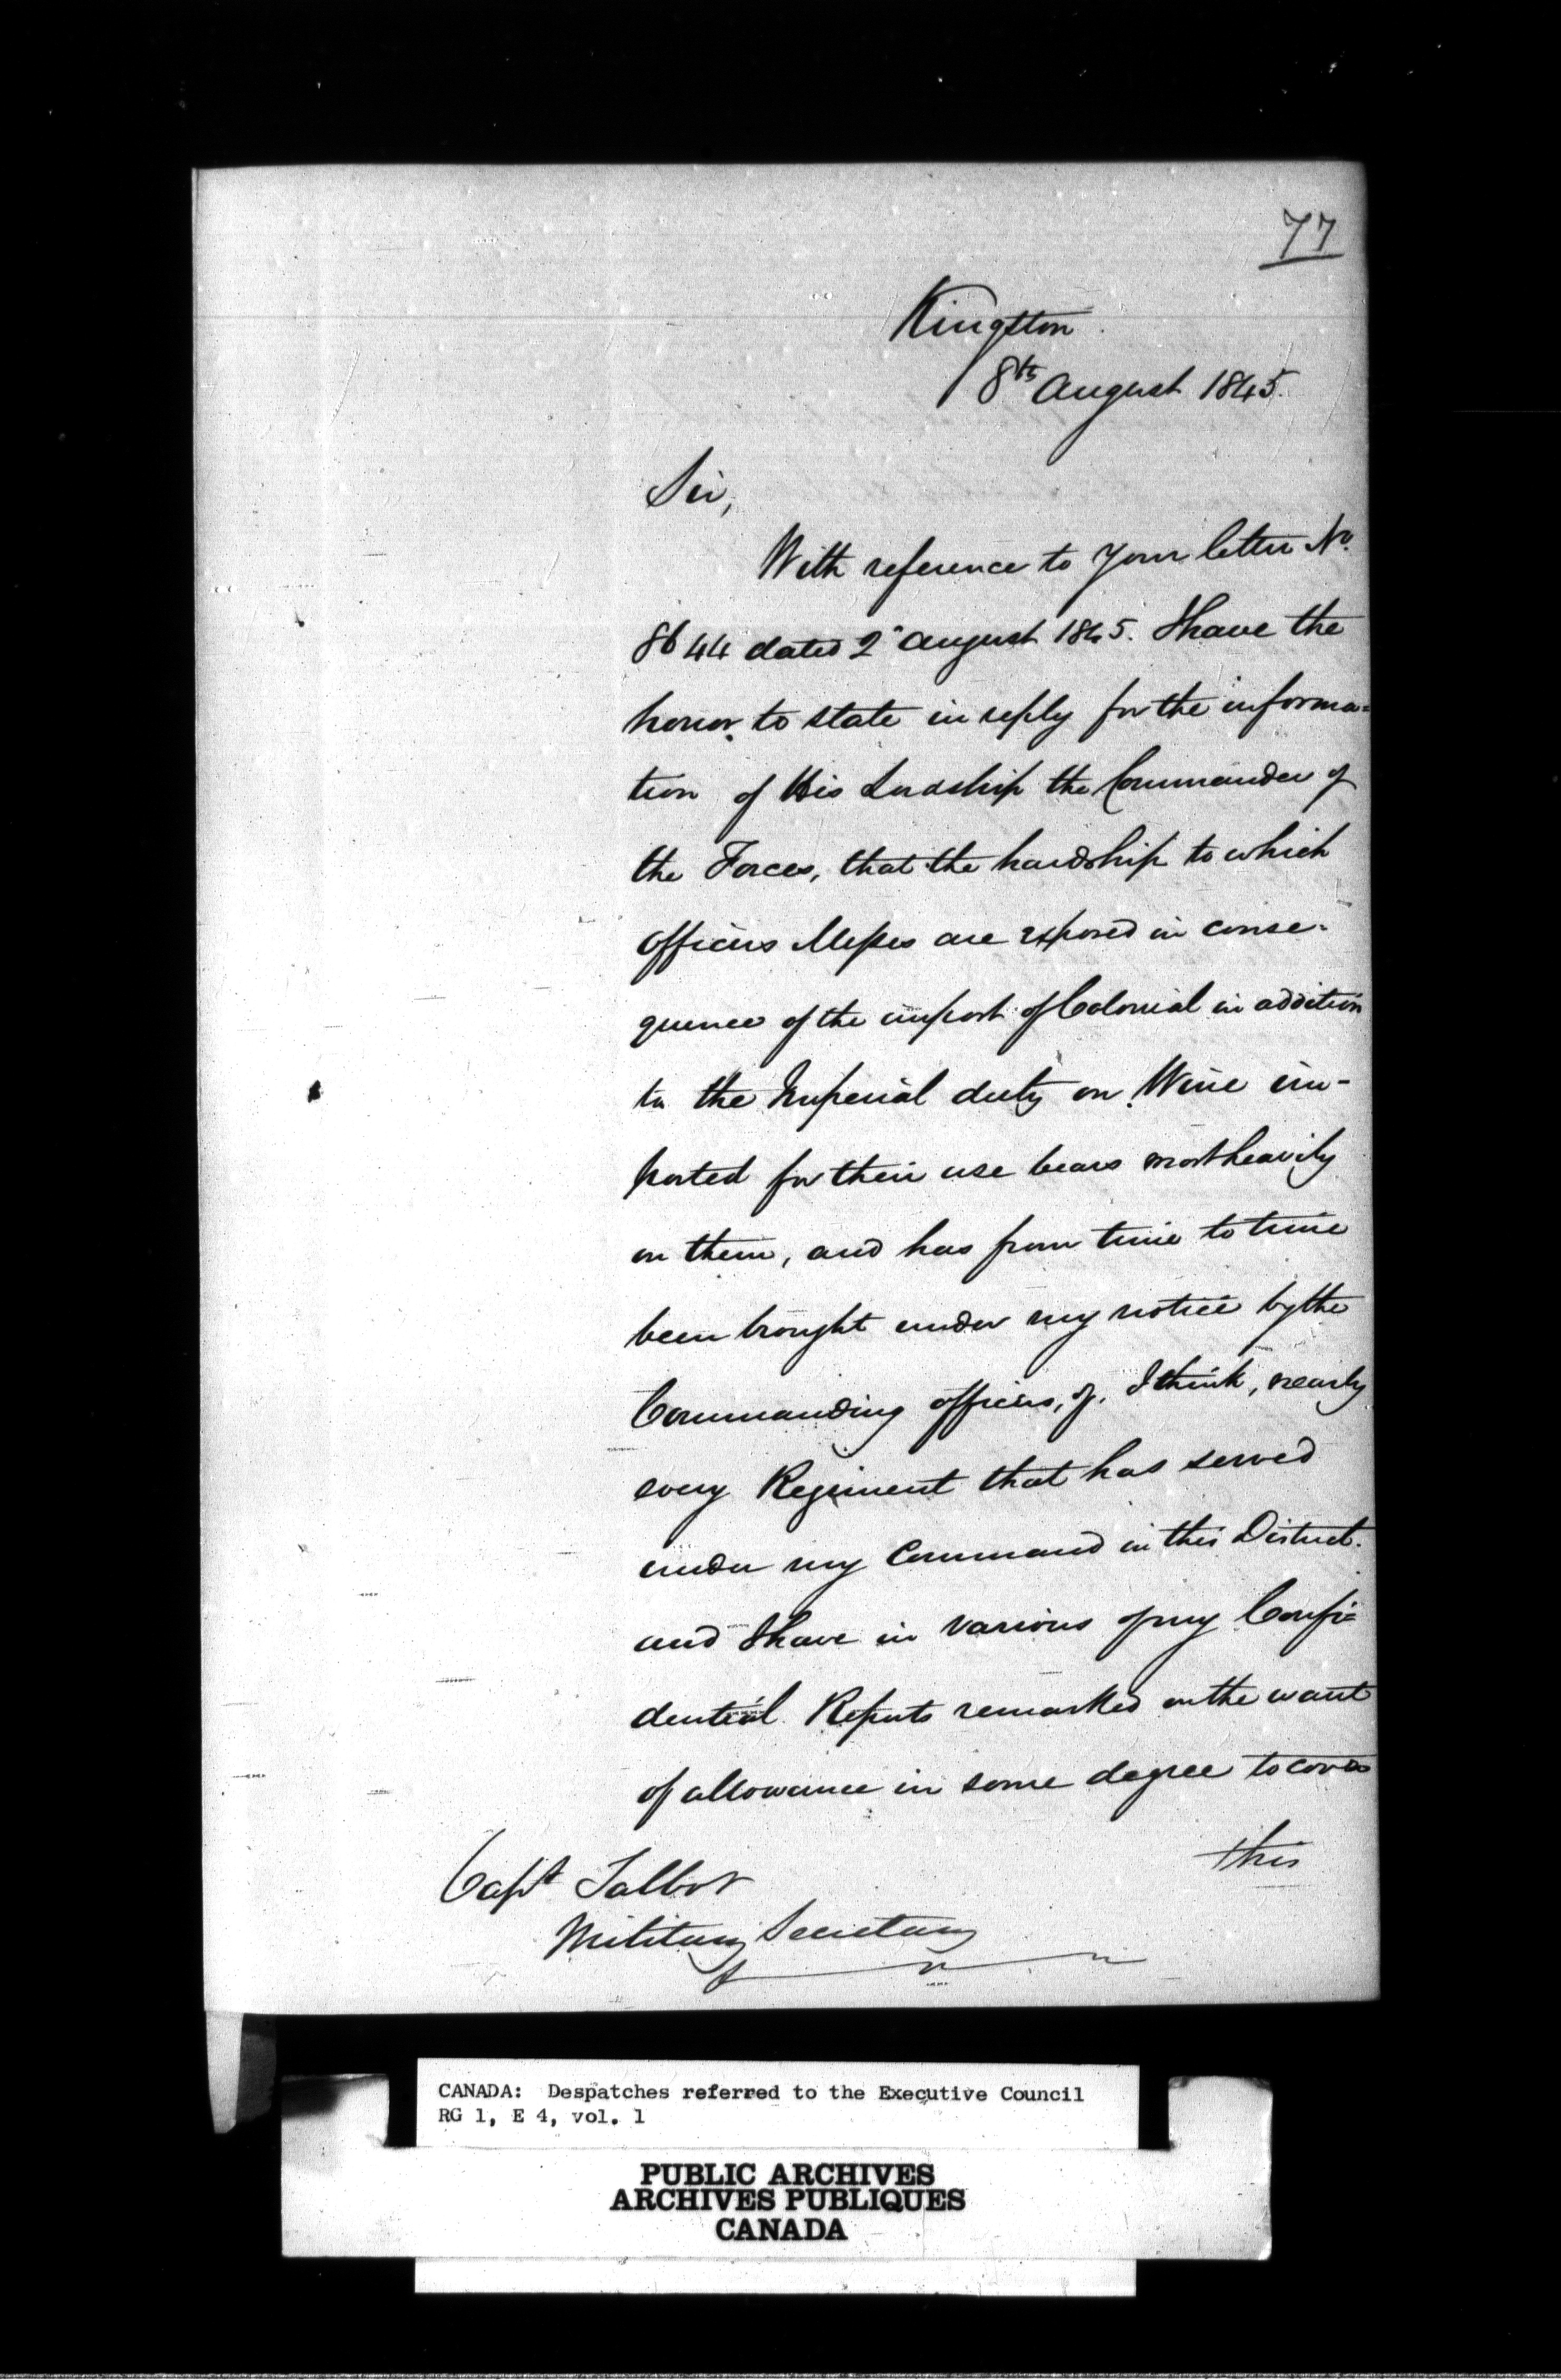 77
Kingston
8th August 1845.
Sir,
With reference to Your letter No.
8644 dated 2d August 1845. I have the
honor to state in reply for the informa=
tion of His Lordship the Commander of
the Forces, that the hardship to which
Officers Messes are exposed in conse-
quence of the impost of Colonial in addition
to the Imperial duty on Wine im-
ported for their use bears most heavily
on them, and has from time to time
been brought under my notice by the
Commanding officers, of, I think, nearly
every Regiment that has served
under my Command in this District.
and I have in various of my Confi=
dential Reports remarked on the want
of allowance in some degree to cover
this
Capt Talbot
Military Secretary
CANADA: Despatches referred to the Executive Council
RG 1, E 4, vol. 1
PUBLIC ARCHIVES
ARCHIVES PUBLIQUES
CANADA